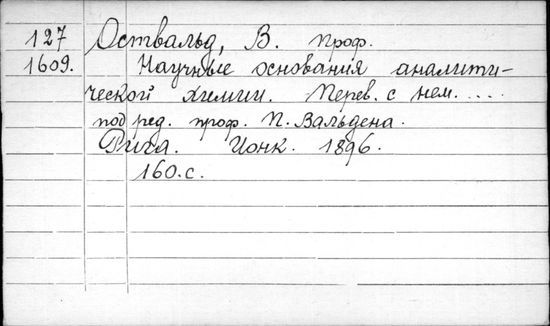 127 Оствальд, В. проф.
1609. Научные основания аналити-
ческой химии. Перев. с нем. ....
под ред. проф. П. Вальдена.
Рига. Ионк. 1896.
160.с.